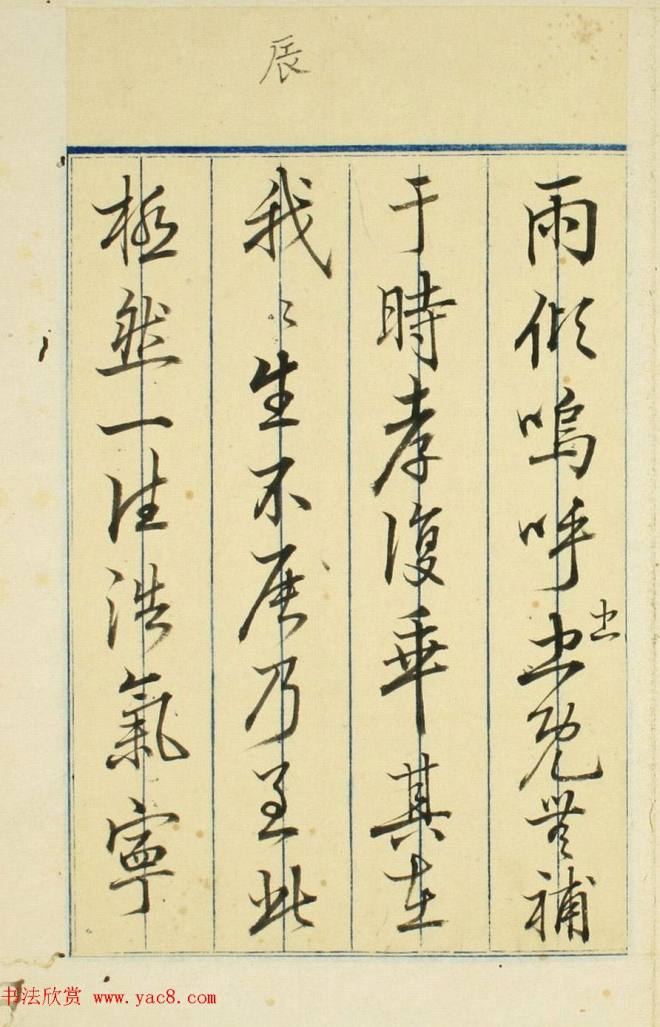 辰
雨傾嗚呼忠既無補
忠
于時孝復乖其在
我〻生不展乃至此
極然一往浩氣寧
书法欣赏 www.yac8.com